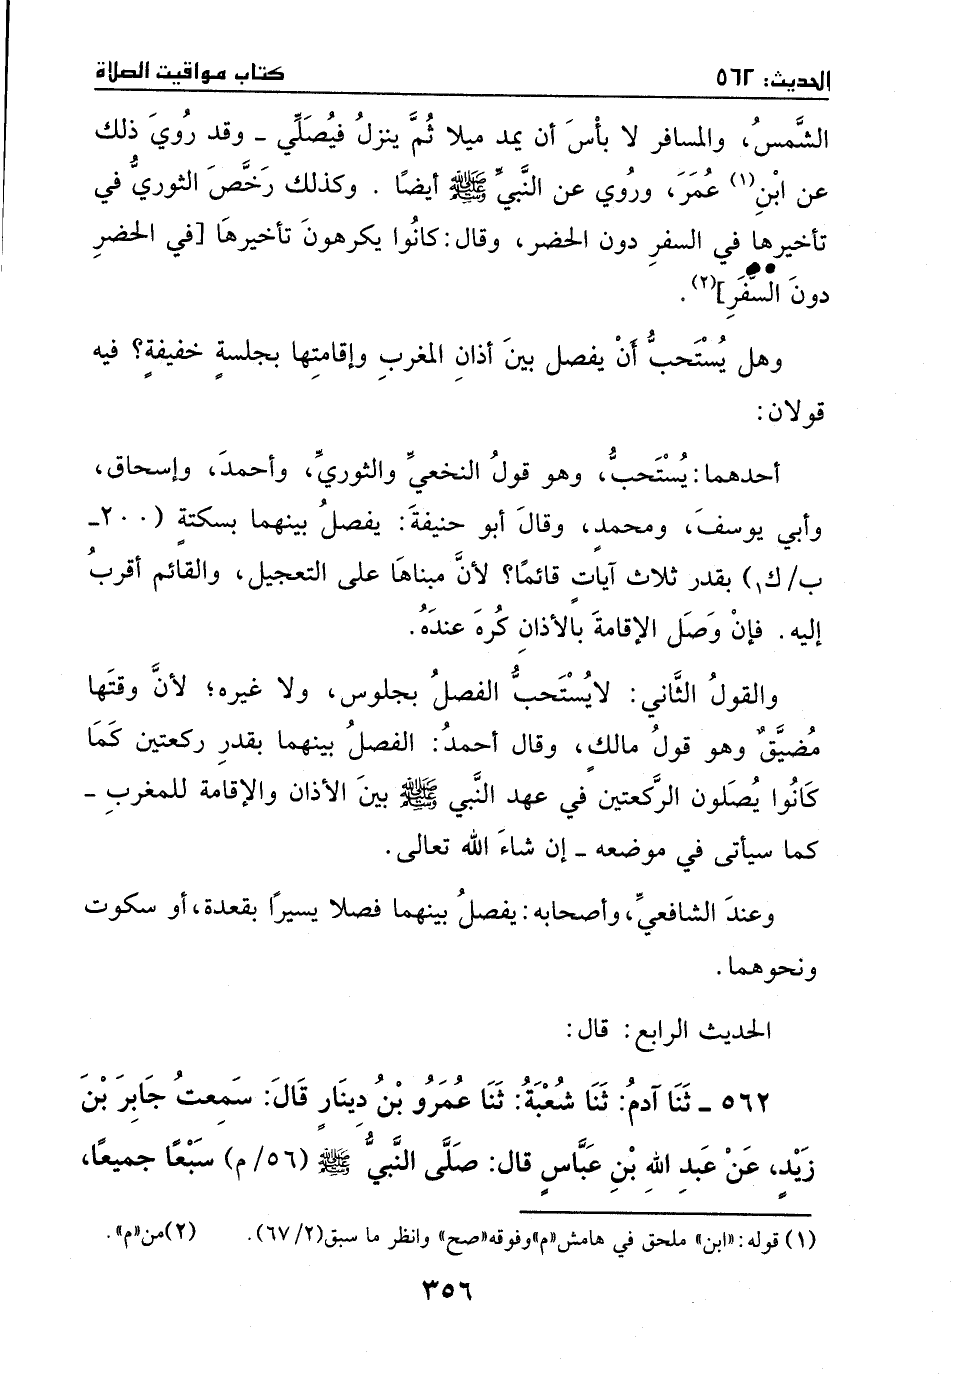 الحديث: ٥٦٢
كتاب مواقيت الصلاة
الشَّمسُ، والمسافر لا بأْسَ أن يمد ميلا ثُمَّ ينزلُ فيُصَلِّي ـ وقد رُويَ ذلك
عن ابْنِ(١) عُمَرَ، ورُوي عن النَّبيِّ ﷺ أيضًا . وكذلك رَخَّصَ الثوريُّ في
تأخيرها في السفرِ دون الحضر، وقال: كانُوا يكرهونَ تأخيرهَا [في الحضرِ
دونَ السَّفَرِ](٢).
وهل يُسْتَحبُّ أَنْ يفصل بينَ أذانِ المغربِ وإقامتِها بجلسةٍ خفيفةٍ؟ فيه
قولان:
أحدهما: يُسْتَحبُّ، وهو قولُ النخعيِّ والثوريِّ، وأحمدَ، وإسحاق،
وأبي يوسفَ، ومحمدٍ، وقالَ أبو حنيفةَ: يفصلُ بينهما بسكتةٍ (٢٠٠ـ
ب/ك١) بقدر ثلاث آياتٍ قائمًا؟ لأنَّ مبناهَا على التعجيل، والقائم أقربُ
إليه. فإنْ وَصَل الإقامةَ بالأذانِ كُرهَ عندَهُ.
والقولُ الثَّاني: لايُسْتَحبُّ الفصلُ بجلوس، ولا غيره؛ لأنَّ وقتَها
مُضيَّقٌ وهو قولُ مالكٍ، وقال أحمدُ: الفصلُ بينهما بقدرِ ركعتين كَمَا
كَانُوا يُصَلون الرَّكعتين في عهد النَّبي ﷺ بينَ الأذان والإقامة للمغربِ ـ
كما سيأتى في موضعه ـ إن شاءَ الله تعالى.
وعندَ الشافعيِّ، وأصحابه: يفصلُ بينهما فصلا يسيرًا بقعدة، أو سكوت
ونحوهما.
الحديث الرابع: قال:
٥٦٢ ـ ثَنَا آدمُ: ثَنَا شعْبَةُ: ثَنَا عمَرُو بْنُ دينَارٍ قَالَ: سَمِعتُ جَابِرَ بْنَ
زَيْدٍ، عَنْ عَبدِ اللهِ بْنِ عَبَّاسٍ قال: صَلَّى النَّبيُّ ﷺ (٥٦/م) سَبْعًا جميعًا،
(١) قوله: «ابن» ملحق في هامش «م» وفوقه «صح» وانظر ما سبق (٢/ ٦٧). (٢) من «م».
٣٥٦